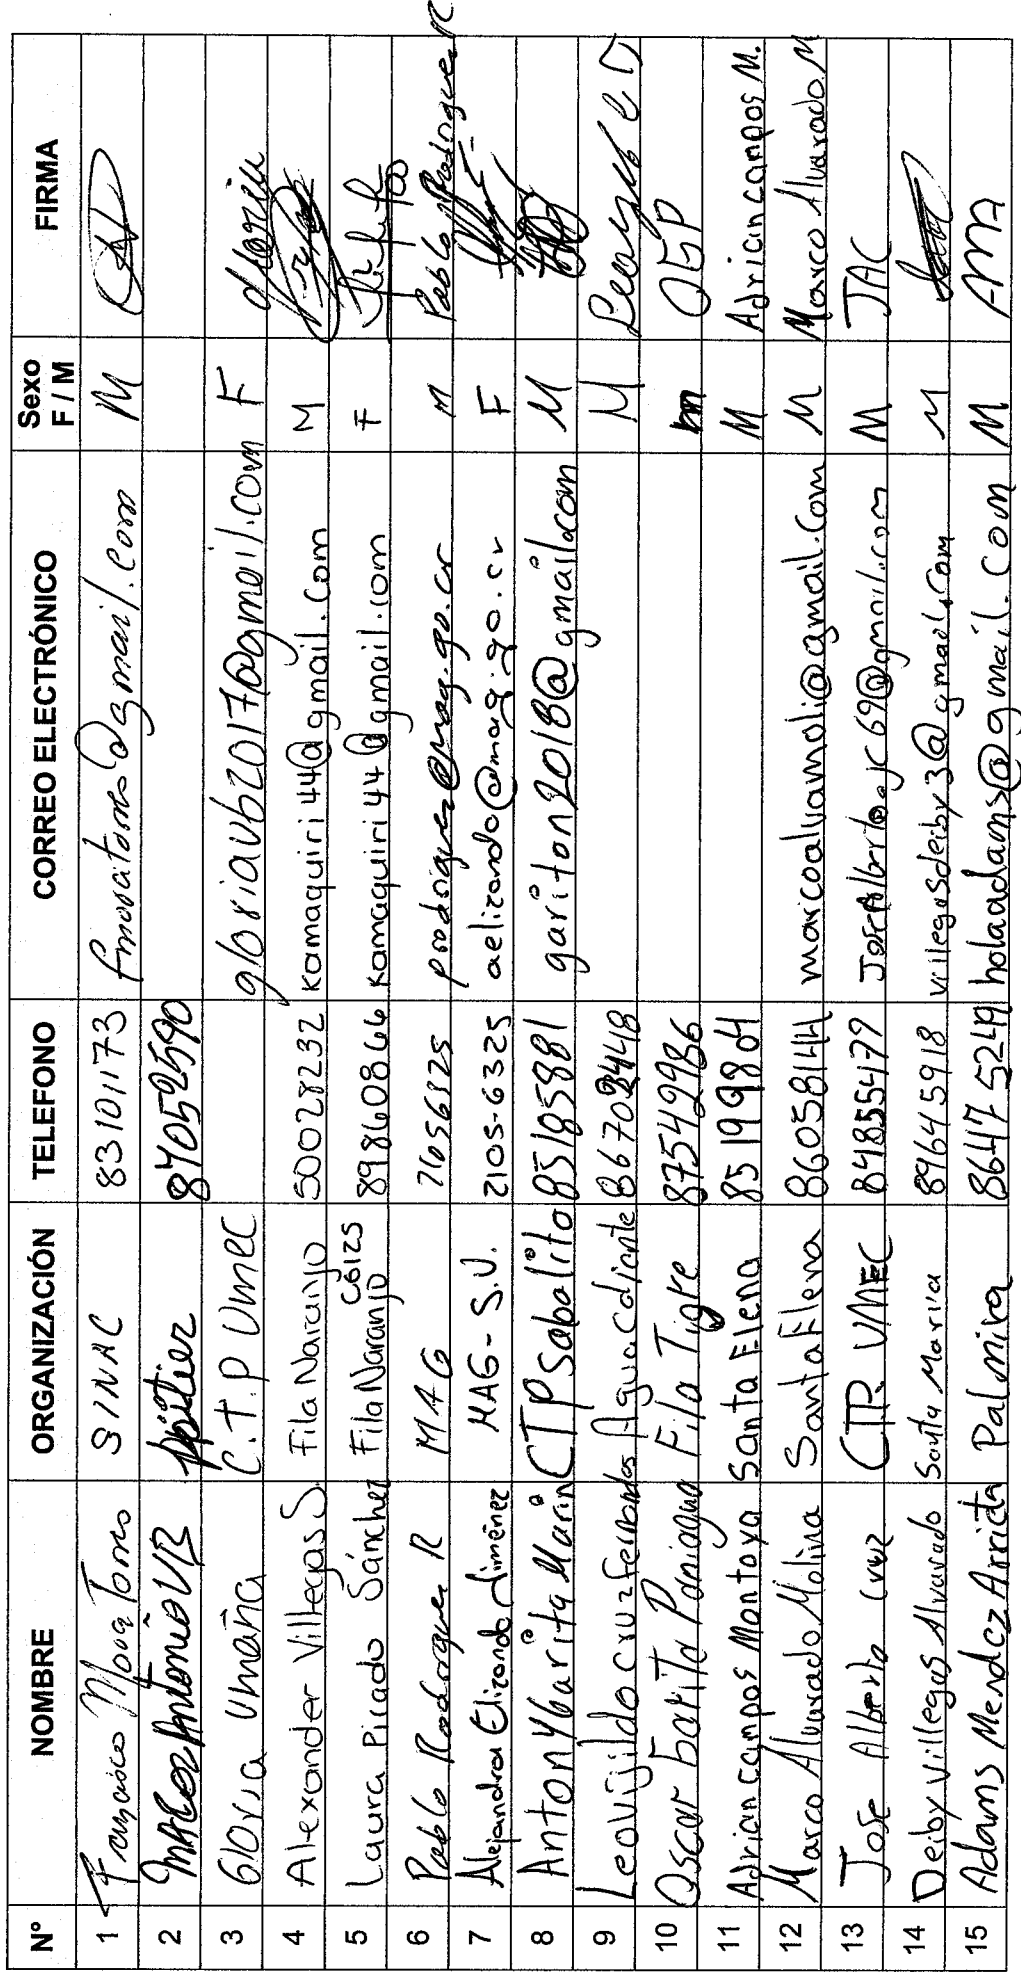 N° NOMBRE ORGANIZACIÓN TELEFONO CORREO ELECTRÓNICO Sexo F / M FIRMA
1 Francisco Mora Torres SINAC 83101173 M
2 Marco Antonio VB 87052590
3 Gloria Umaña C.T.P Umec gloriaub2017@gmail.com F Gloria
4 Alexander Villegas S Fila Naranjo 50028232 kamaquiri44@gmail.com M
5 Laura Picado Sánchez Fila Naranjo Coizs 89860866 kamaquiri44@gmail.com F
6 Pablo Rodriguez R MAG 21056325 prodriguez@mag.go.cr M Pablo Rodriguez R
7 Alejandra Elizondo Jiménez MAG-S.V. 2105-6325 aelizondo@mag.go.cr F
8 Antony Garita Marin CTP Sabalito 85185881 gariton2018@gmail.com M
9 Leovijildo cruz fernandes Aguacaliente 86708448 M
10 Oscar Garita Paniagua Fila Tigre 87542986 m OGP
11 Adrian campos Montoya Santa Elena 85199804 M Adrian campos M.
12 Marco Alvarado Molina Santa Elena 86058144 marcoalvamoli@gmail.com M Marco Alvarado M
13 Jose Alberto cruz CTP. UMEC 84855479 M JAC
14 Deiby Villegas Alvarado Santa Maria 89645918 villegasdeiby3@gmail.com M
15 Adams Mendez Arrieta Palmira 86475249 holaadams@gmail.com M AMA